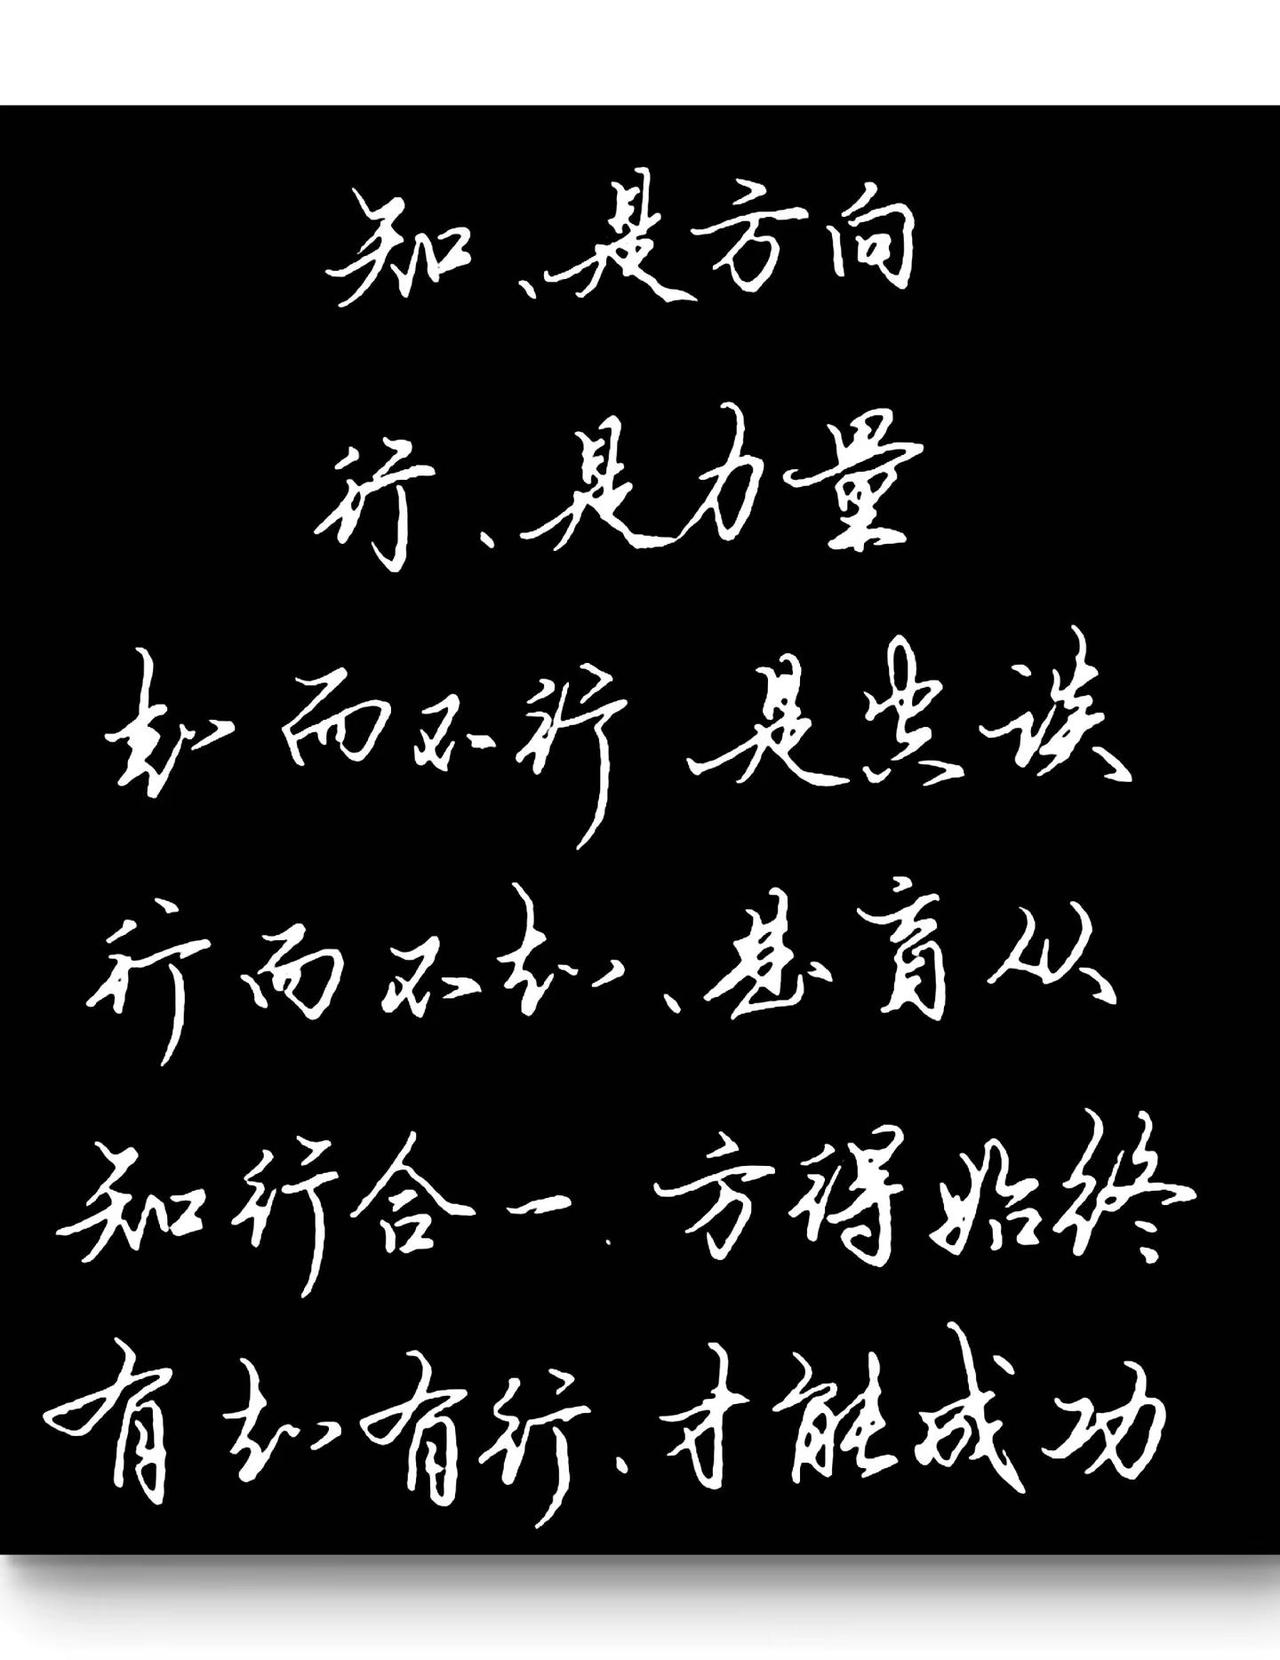 知、是方向
行、是力量
知而不行 是空谈
行而不知、是盲从
知行合一.方得始终
有知有行、才能成功